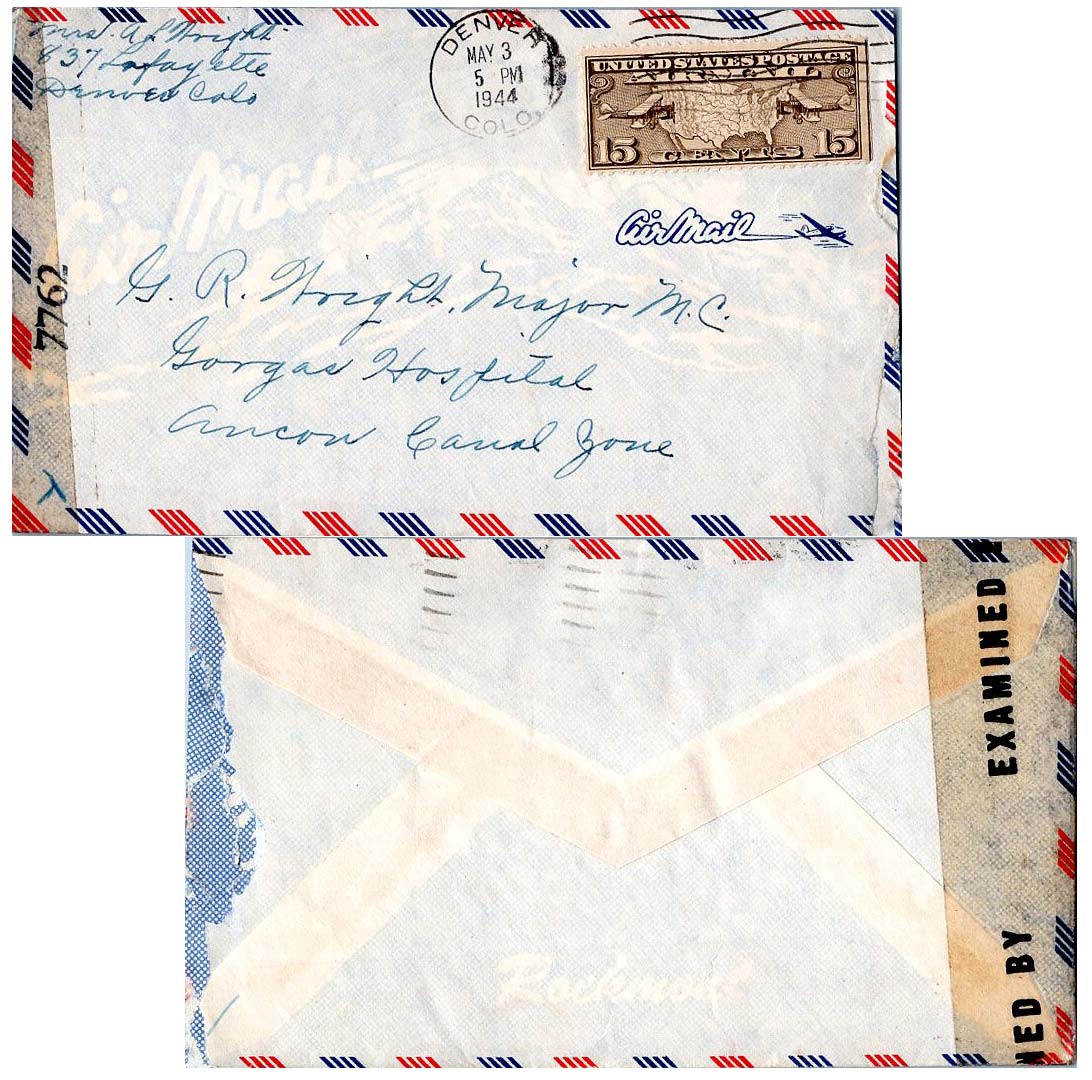 Mrs. A L Wright
837 Lafayette
Denver Colo
DENVER
MAY 3
5 PM
1944
COLO.
UNITED STATES POSTAGE
AIR MAIL
15 CENTS 15
Air Mail
Air Mail
7762
G. R. Wright, Major M.C.
Gorgas Hospital
Ancon Canal Zone
EXAMINED
NED BY
Rockmont